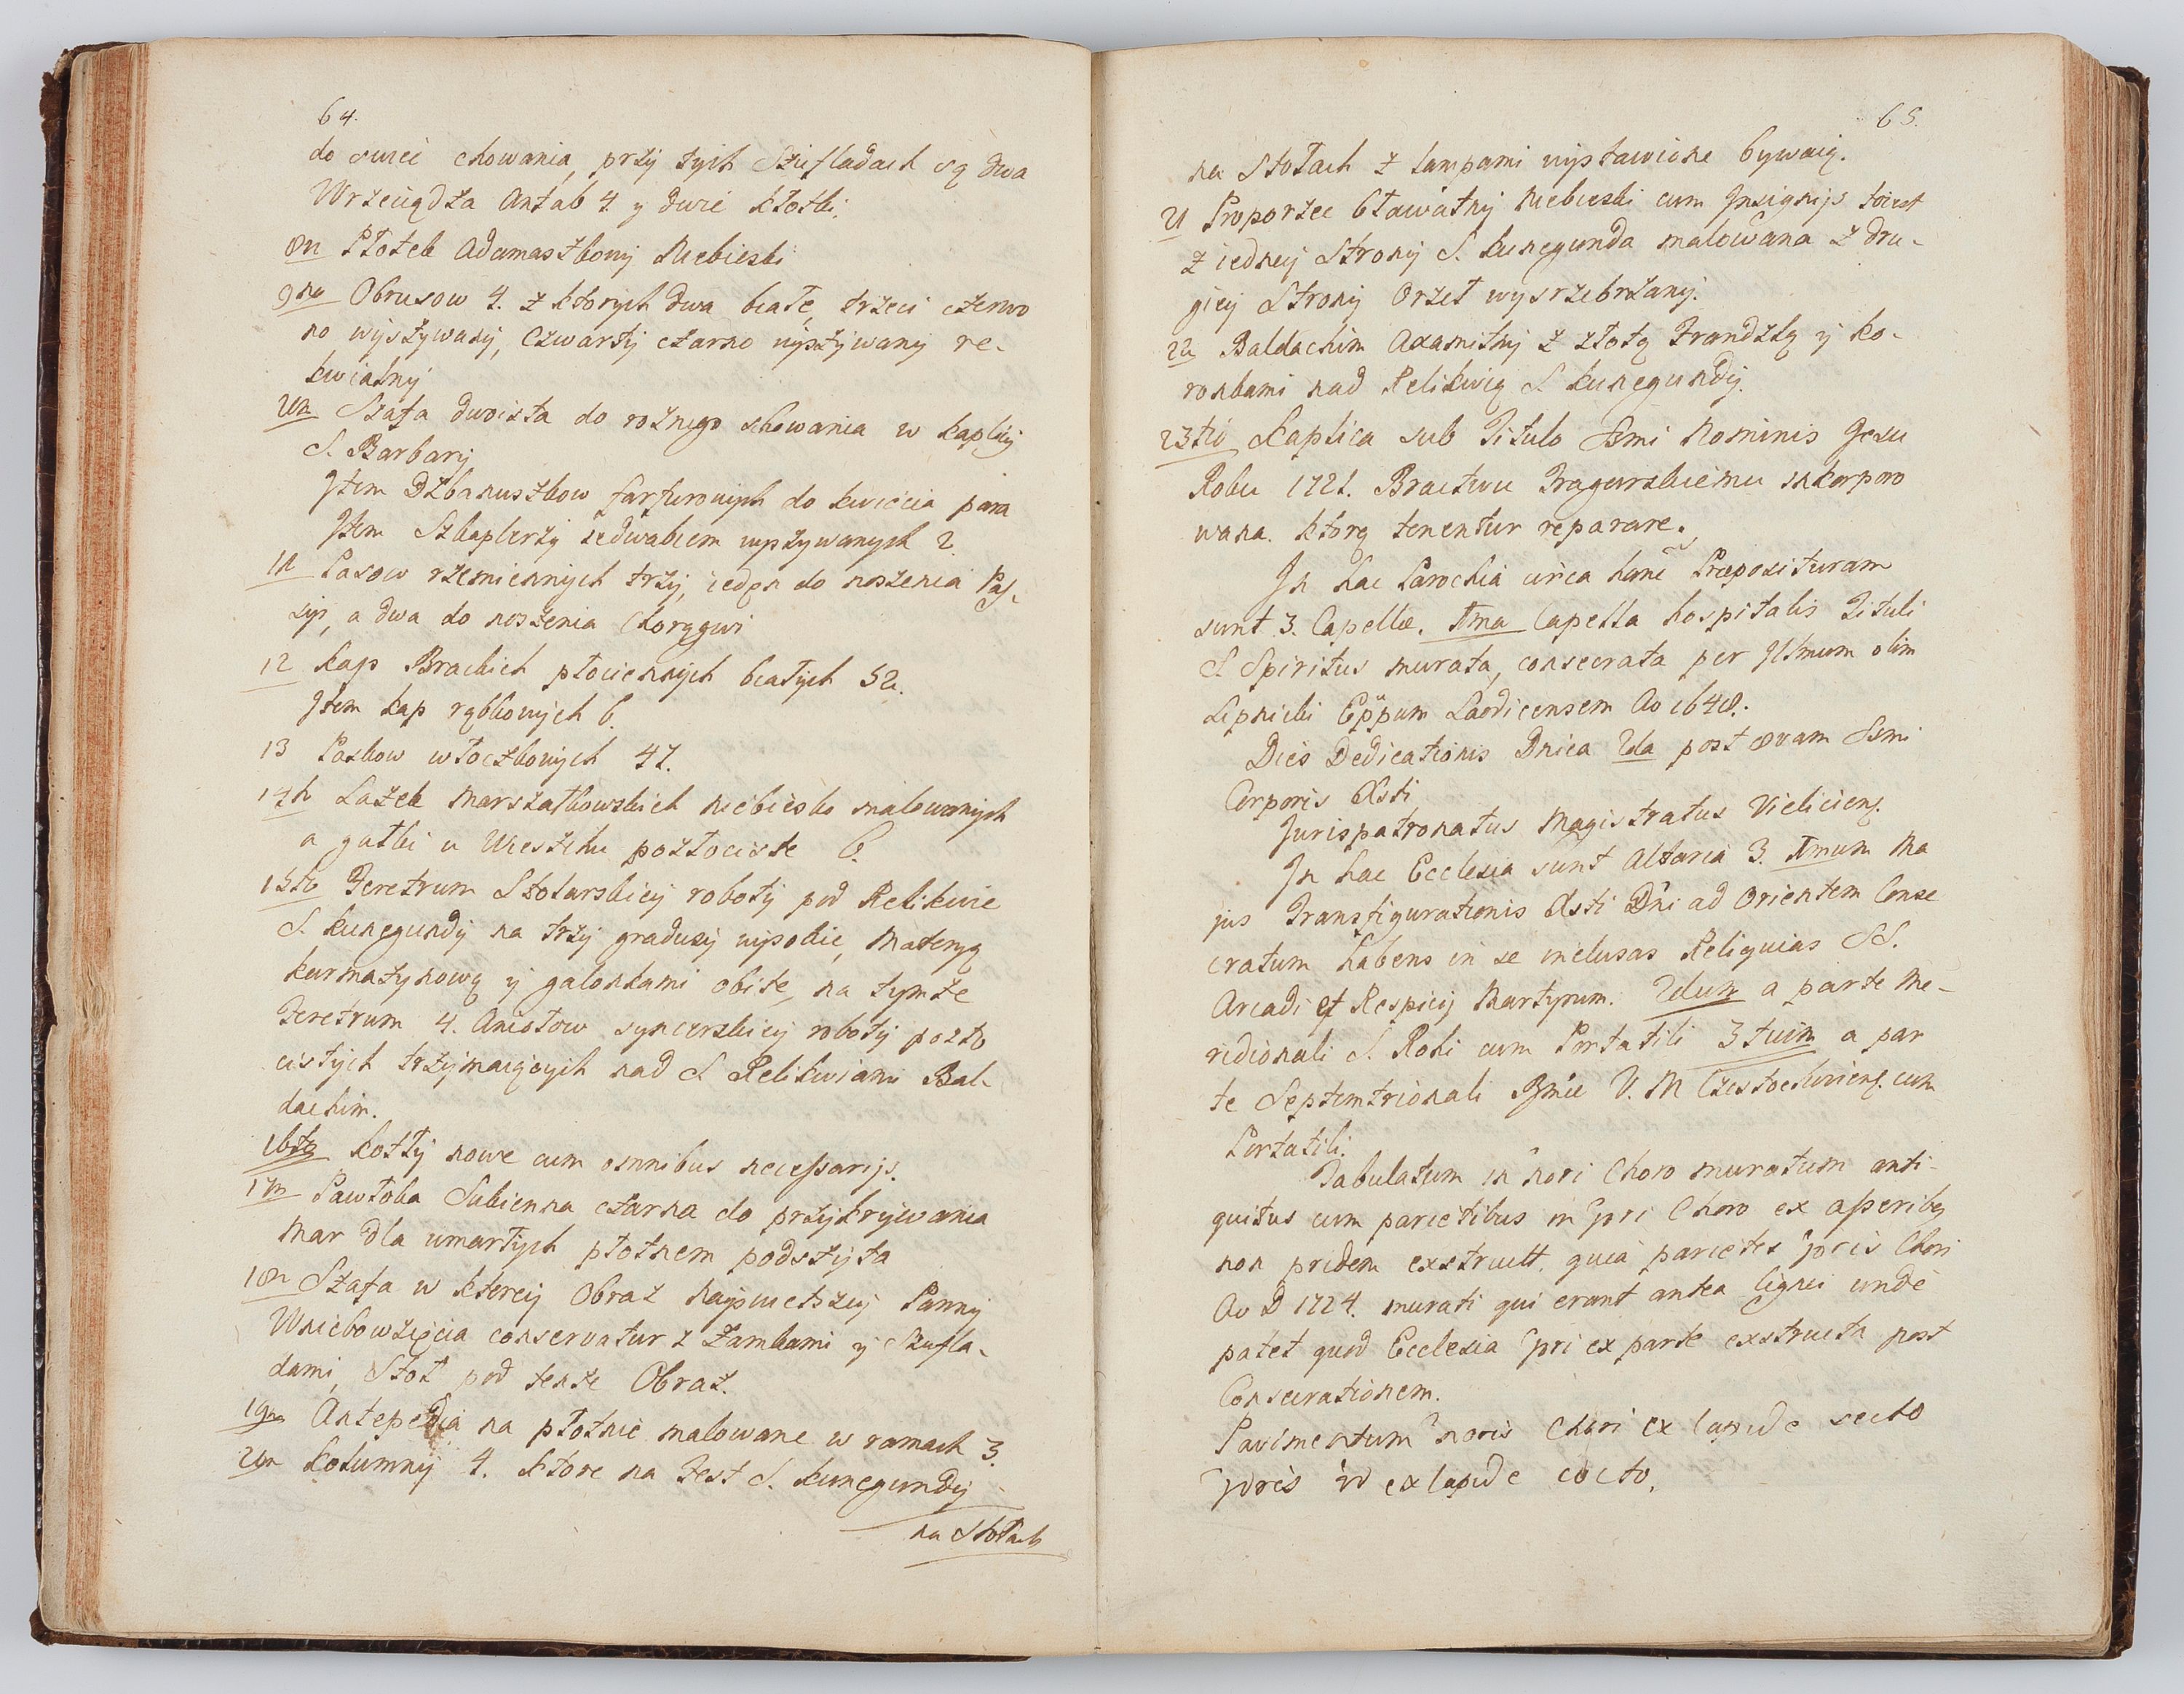 64.
do swiec chowania, przÿ tÿch Szufladach są dwa
Wrzeciądza Antab 4. y dwie kłotki.
8u Płotek Adamaszkowÿ Niebieski
9no Obrusow 4. z ktorÿch dwa białe, trzeci czerwo
no wÿszÿwanÿ, czwartÿ czarno wÿszÿwanÿ re-
kwialnÿ
Szafa dwoista do roznego schowania w kaplicÿ
S. Barbarÿ
Jtem Dzbanuszkow farfurowÿch do kwiecia para
Jtem Szkaplerzÿ iedwabiem wÿszÿwanÿch 2.
11 Pasow rzemiennÿch trzÿ, ieden do noszenia Pas-
sÿi, a dwa do noszenia Chorągwi
12 Kap Brackich płociennÿch białÿch 52.
Jtem kap rąbkowÿch 6.
13 Paskow włoczkowÿch 47.
14to Lazek Marszałkowskich niebiesko malowanÿch
a gałki u Wierzchu pozłociste 6.
15to Feretrum Stolarskieÿ robotÿ pod Relikwie
S. Kunegundÿ na trzÿ gradusÿ wÿsokie, Materÿą
karmazÿnową ÿ galonkami obite, na tÿmze
Feretrum 4. Aniołow snÿcerskieÿ robotÿ pozło
cistÿch trzÿmaiącÿch nad S. Relikwiami Bal-
dachim.
16to Kotłÿ nowe cum omnibus necessarijs.
17m Pawłoka Sukienna czarna do przÿkrÿwania
Mar dla umarłÿch płotnem podszÿta
18u Szafa w ktoreÿ Obraz Nayswietszeÿ Pannÿ
Wniebowzięcia conservatur z Zamkami ÿ Szufla-
dami, Stoł pod tenze Obraz.
19no Antepedia na płotnie malowane w ramach 3.
Kolumnÿ 4. ktore na Fest S. Kunegundÿ
na Stołach
65.
na Stołach z lampami wÿstawione bÿwaią.
21 Proporzec bławatnÿ Niebieski cum Jnsignijs toiest
z iedneÿ Stronÿ S. Kunegunda malowana z dru-
gieÿ Stronÿ Orzeł wÿsrzebrzanÿ.
22 Baldachim Axamitnÿ z złotą Frandzlą ÿ ko-
ronkami nad Relikwią S. Kunegundÿ.
23tio Kaplica sub Titulo SSmi Nominis Jesu
Roku 1721. Bractwu Tragarskiemu inkorporo
wana. którą tenentur reparare.
Jn hac Parochia circa hanc Præposituram
sunt 3. Capellæ. Jma Capella hospitalis Tituli
S Spiritus murata, consecrata per Jllmum olim
Lipnicki Eppum Laodicensem Ao 1648.
Dies Dedicationis Dnica 2da post 8vam SSmi
Corporis Xsti
Jurispatronatus Magistratus Vieliciens.
Jn hac Ecclesia sunt Altaria 3. Jmum Ma
jus Transfigurationis Xsti Dni ad Orientem Conse
cratum habens in se inclusas Reliquias SS.
Arcadi et Respicij Martyrum. 2dum a parte Me-
ridionali S. Rochi cum Portatili 3tium a par
te Septemtrionali Bmæ V. M Częstochoviens. cum
Portatili.
Tabulatum in nori Choro muratum anti-
quitus cum parietibus in ỹri Choro ex asseribus
non pridem exstructũ. quia parietes ỹris Chori
Ao D 1724. murati qui erant antea lignei unde
patet quod Ecclesia ỹri ex parte exstructa post
Consecrationem.
Pavimentum noris Chori ex lapide secto
ex lapide cocto.